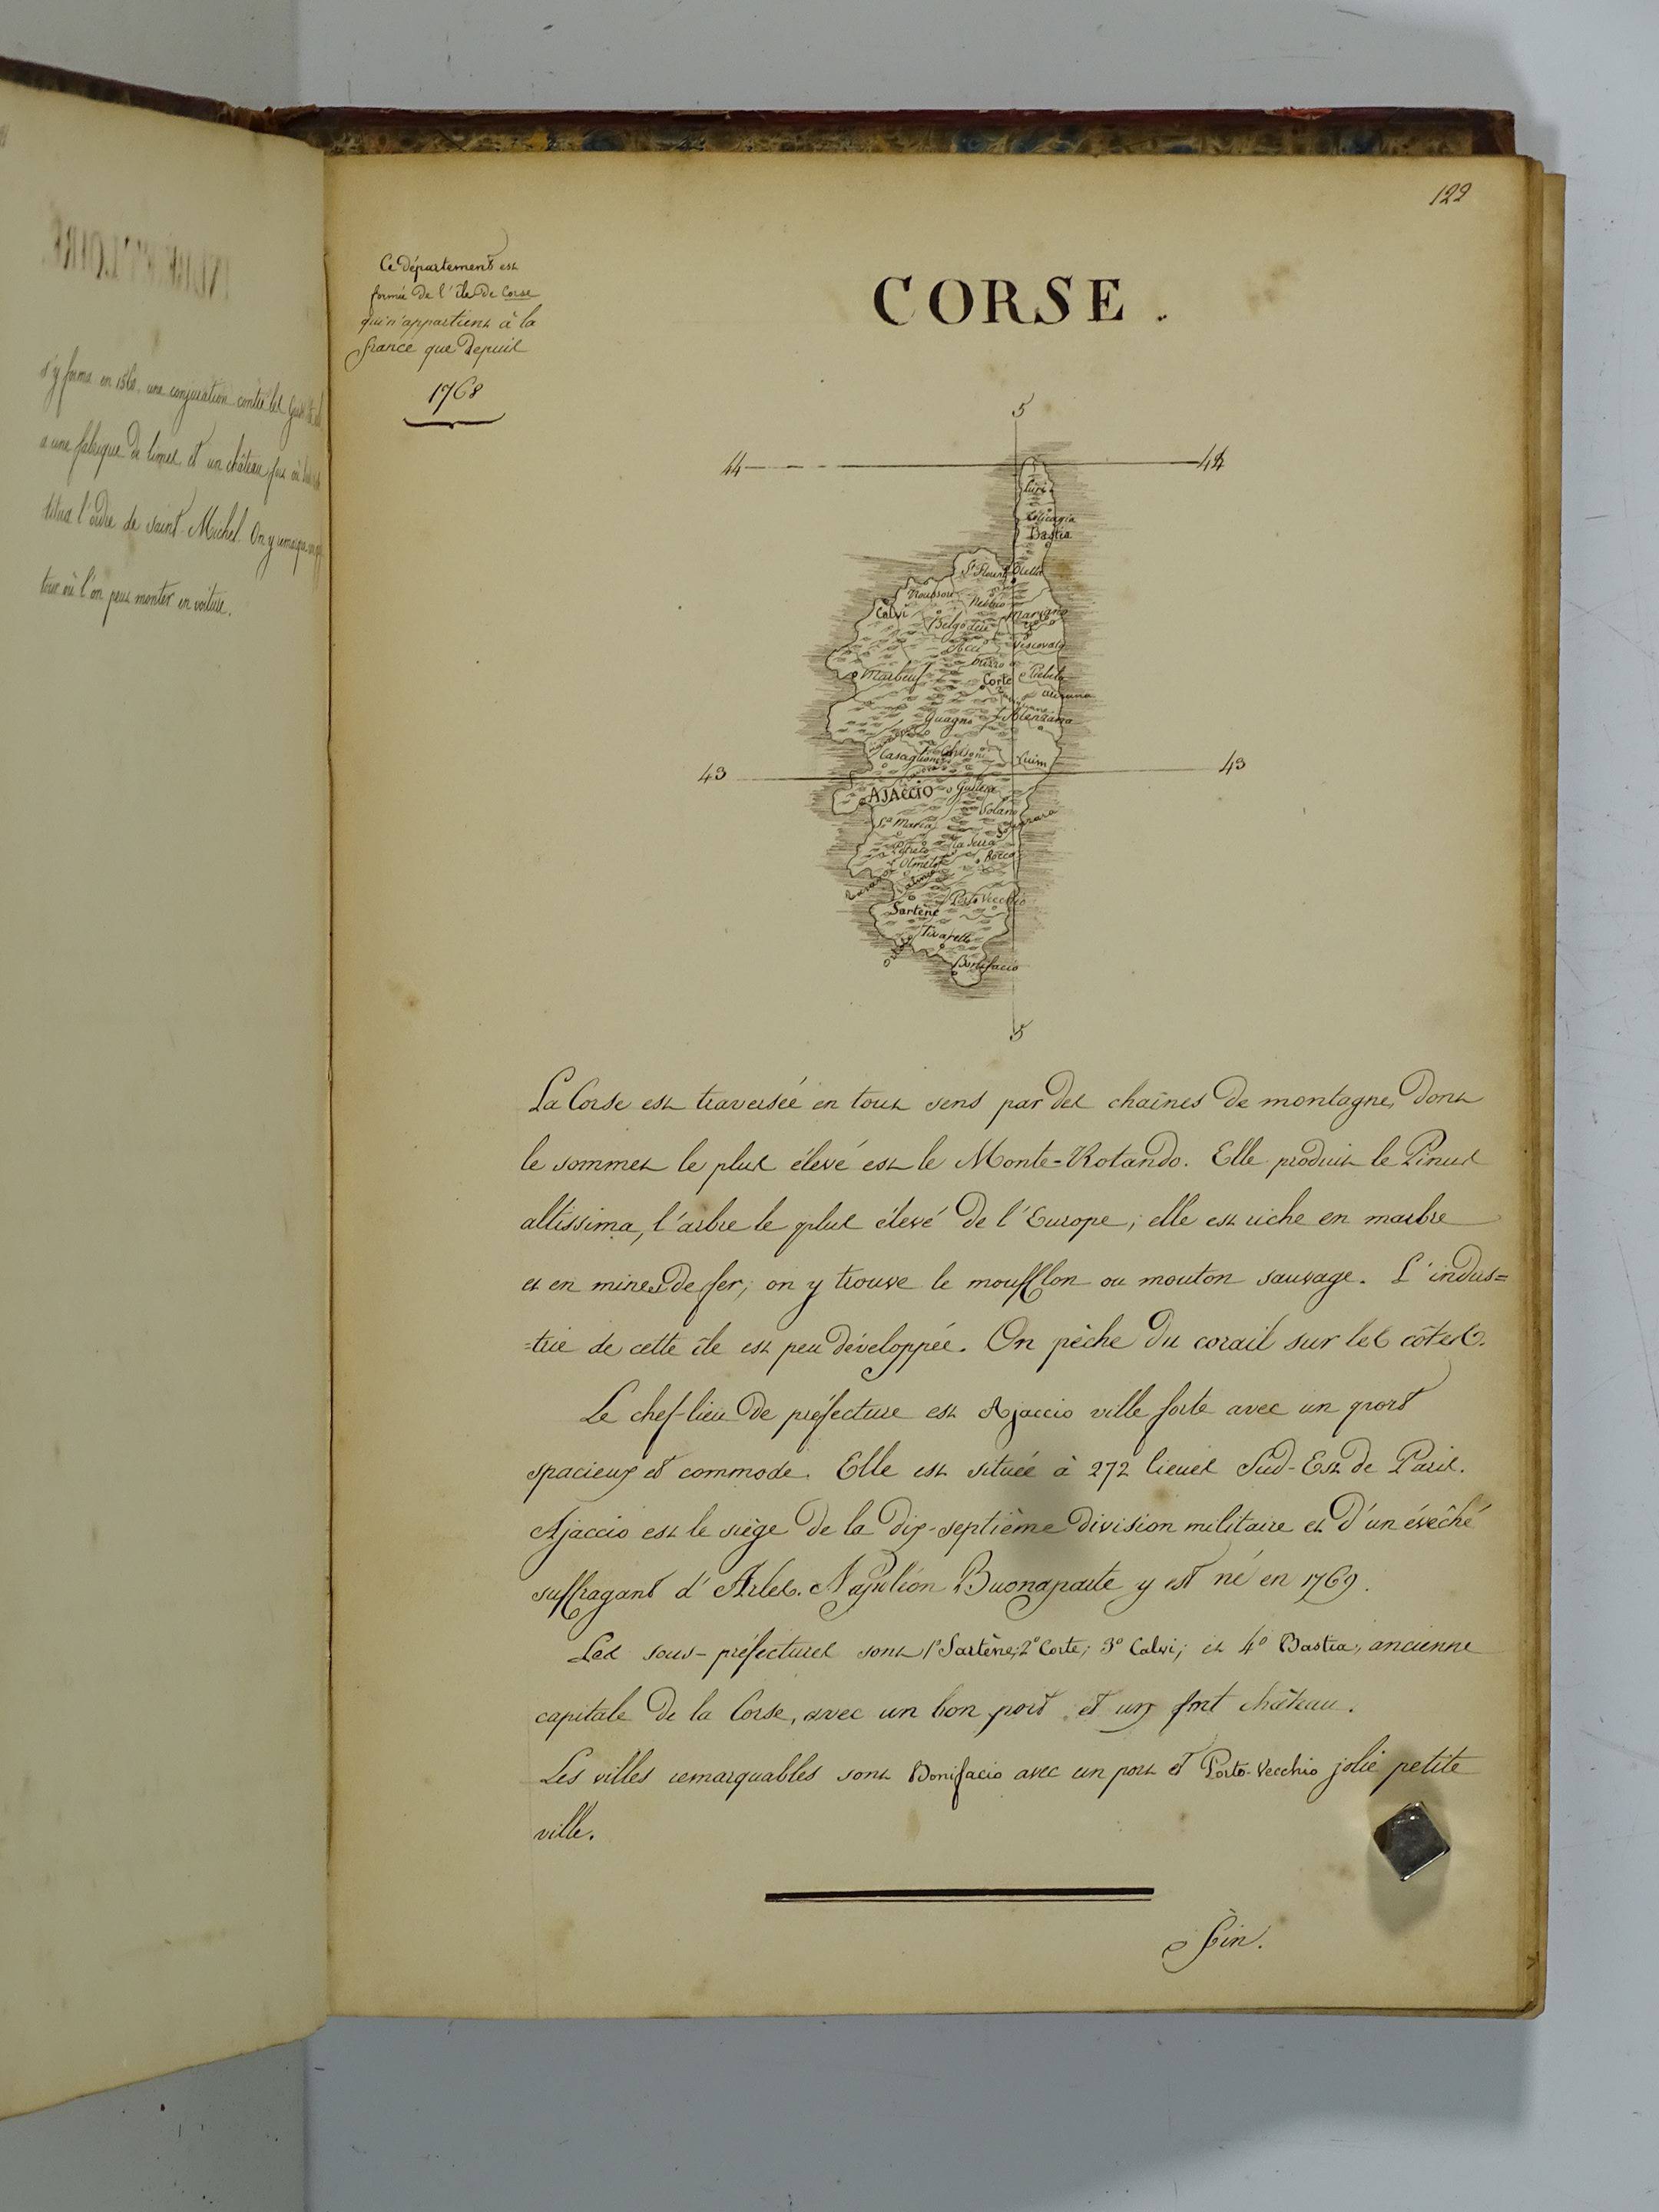 s'y forma en 1560 une conjuration contre les
a une fabrique de limes et un château fort où
titua l'ordre de saint-Michel. On y remarque
tour où l'on peut monter en voiture.
122
Ce département est
formé de l'île de Corse
qui n'appartient à la
france que depuis
1768
CORSE.
5
44 44
Luri
Bastia
St Florent Biella
Calvi
Belgodere
Mariana
Vescovato
Marbeuf
Corte
Guagno
Casaglione
43 43
AJACCIO
Solano
Sta Maria
la Serra
Olmeto
Rocca
Porto Vecchio
Sartène
Tivarello
Bonifacio
5
La Corse est traversée en tout sens par des chaînes de montagne, dont
le sommet le plus élevé est le Monte=Rotando. Elle produit le Pinus
altissima, l'arbre le plus élevé de l'Europe; elle est riche en marbre
et en mines de fer; on y trouve le moufflon ou mouton sauvage. L'indus=
=trie de cette île est peu développée. On pêche du corail sur les côtes.
Le chef-lieu de préfecture est Ajaccio ville forte avec un port
spacieux et commode. Elle est située à 272 lieues Sud-Est de Paris.
Ajaccio est le siège de la dix-septième division militaire et d'un évêché
suffragant d'Arles. Napoléon Buonaparte y est né en 1769.
Les sous-préfectures sont 1º Sartène; 2º Corte; 3º Calvi; et 4º Bastia, ancienne
capitale de la Corse, avec un bon port et un fort château.
Les villes remarquables sont Bonifacio avec un port et Porto-Vecchio jolie petite
ville.
Fin.